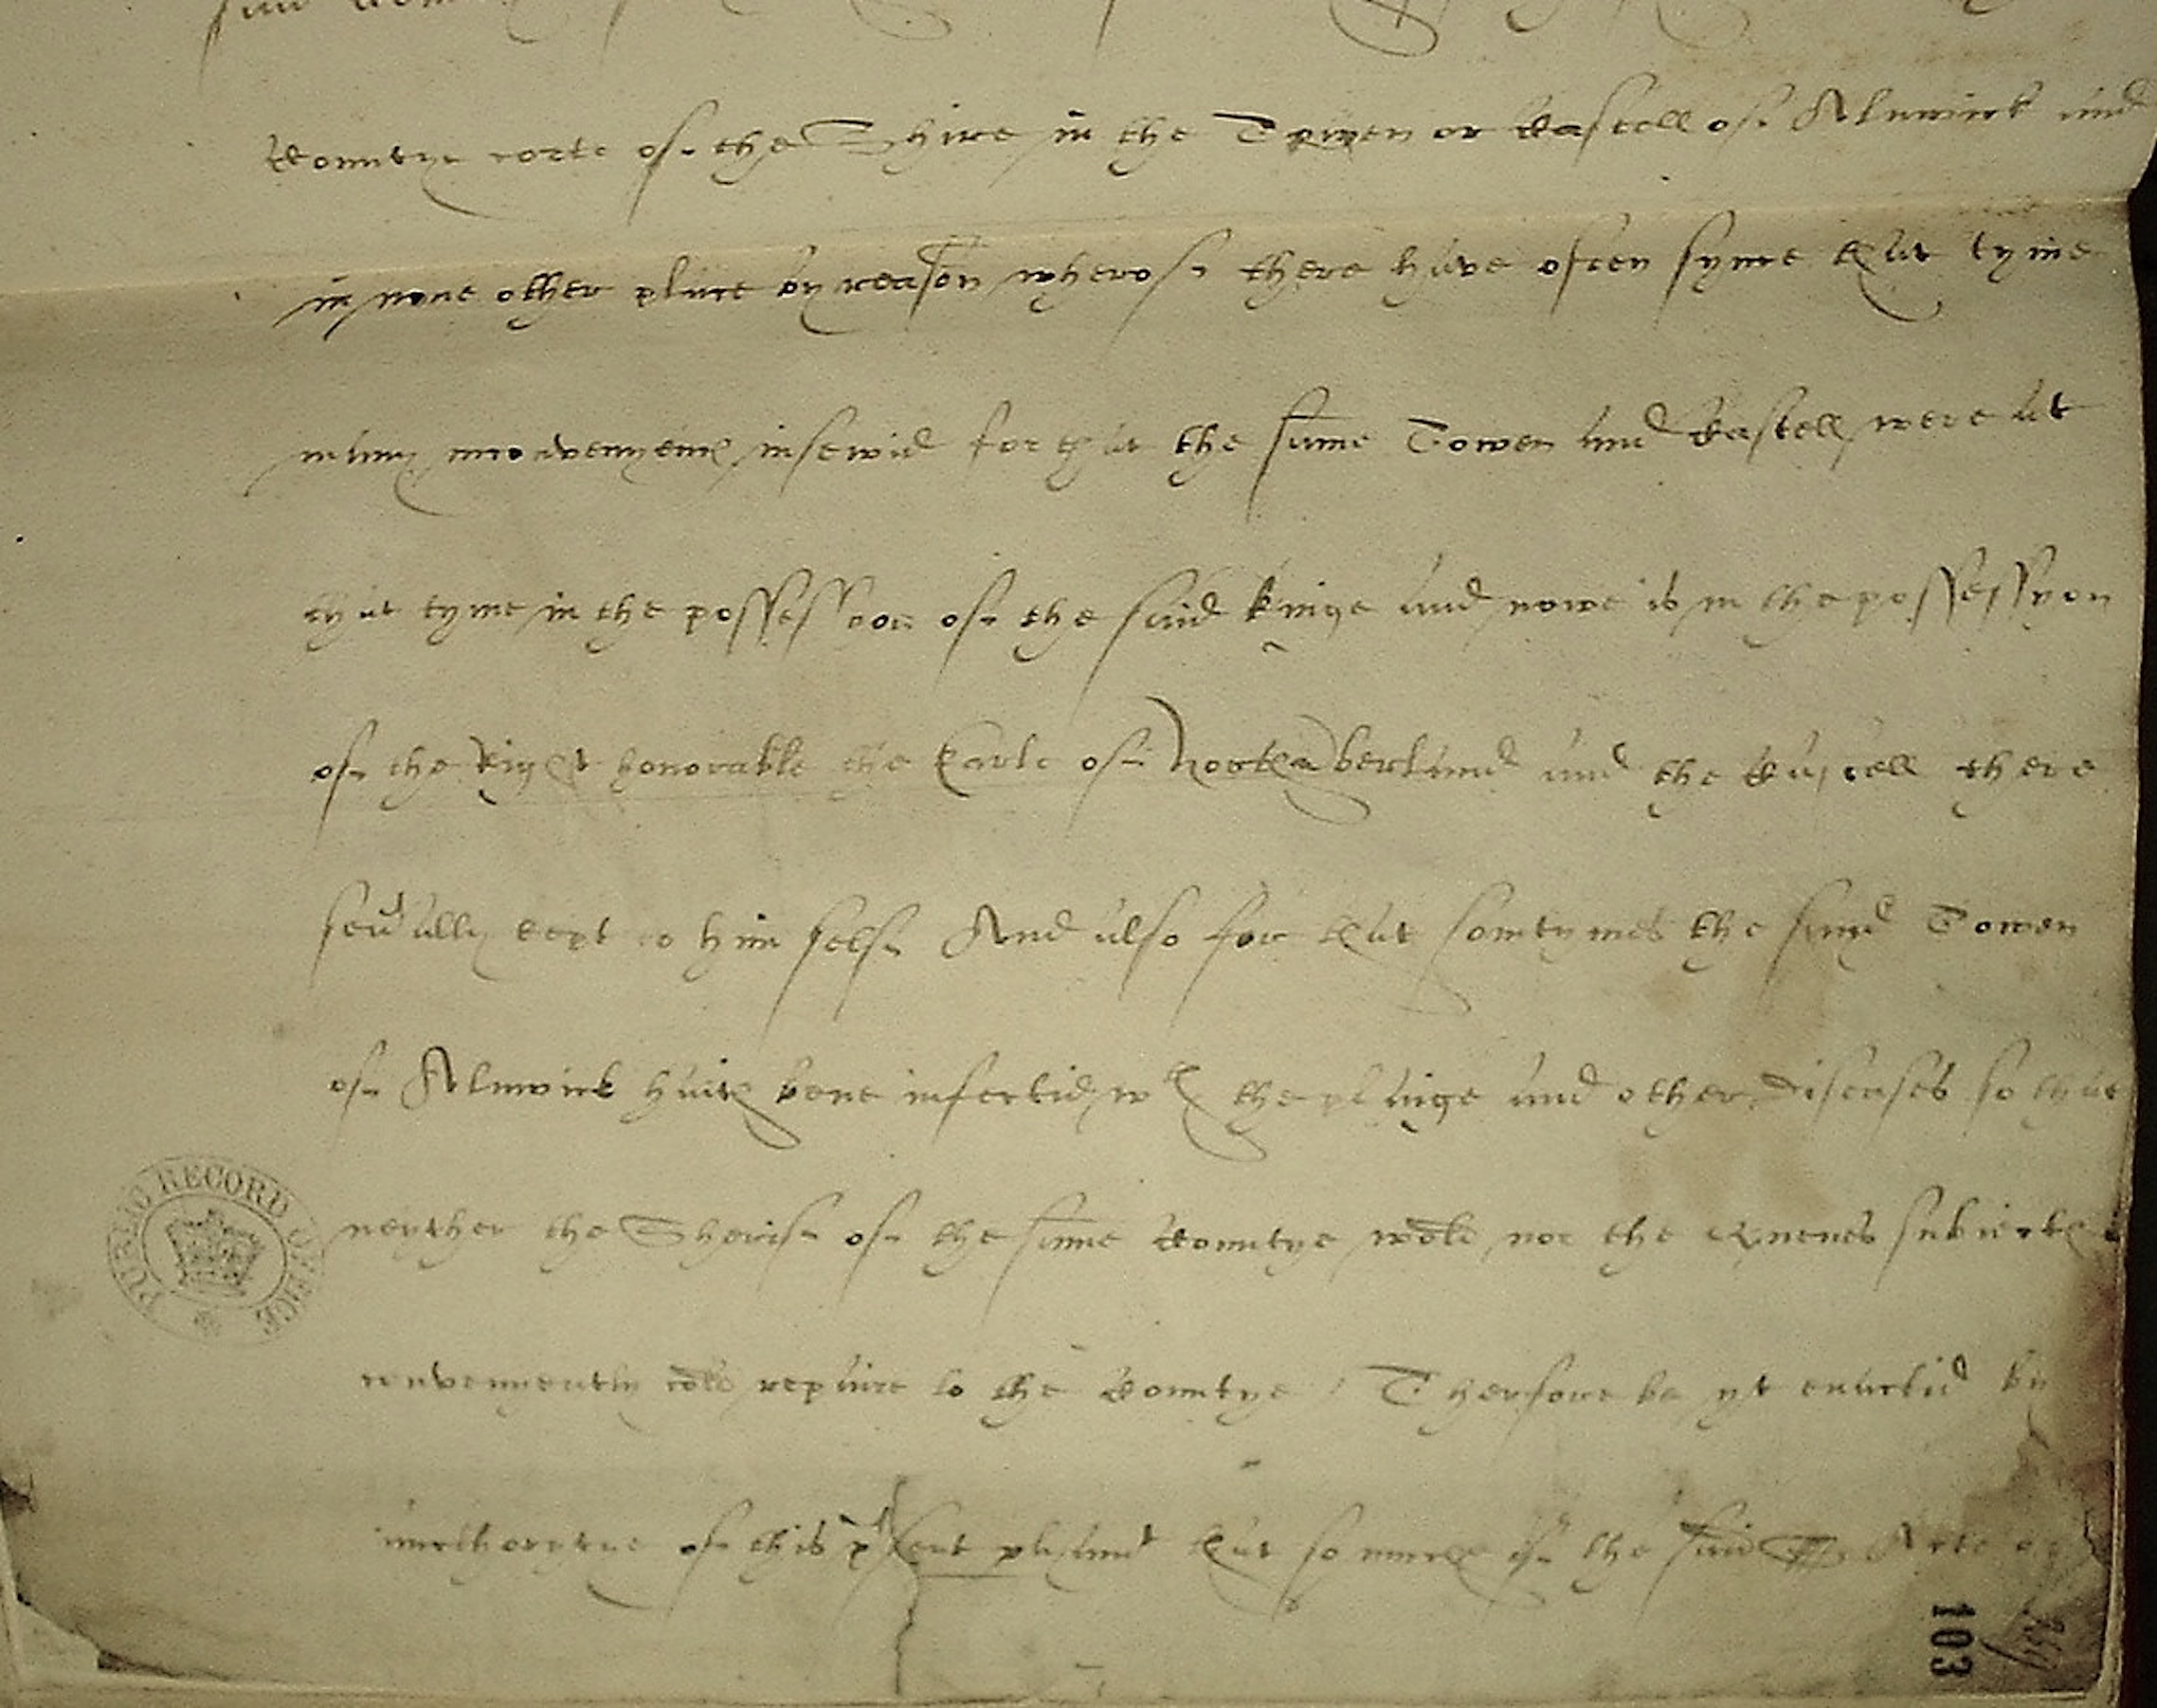 said
Countye corte of the Shire in the Towen or Castell of Alnwick and
in none other place by reason wherof there have often syme that tyme
many inconvenyenc insewid for that the same Towen and Castell were at
that tyme in the possession of the said kinge and nowe is in the possessyon
of the Right honorable the Earle of Northaberland and the Castell there
sevally kept to him self And also for that somtymes the said Towen
of Alnwick haith bene infectid wth the plaige and other diseases so that
neyther the Sherif of the same Countye wolde nor the Quenes subiects
convenyently colde repaire to the Countye / Therfore be yt enactid by
aucthorytie of this psent plyament that so much of the said Acte
PUBLIC RECORD OFFICE
103